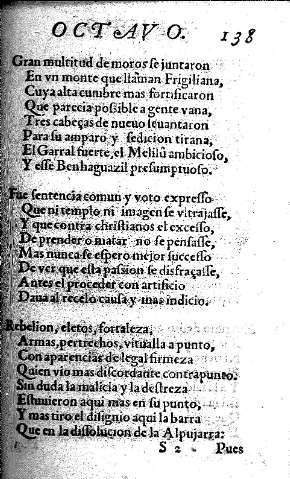 OCTAVO. 138
Gran multitud de moros se juntaron
En vn monte que llaman Frigiliana,
Cuya alta cumbre mas fortificaron
Que parecia possible a gente vana,
Tres cabeças de nueuo leuantaron
Para su amparo y sedicion tirana,
El Garral fuerte, el Melilù ambicioso,
Y esse Benhaguazil presumptuoso.
Fue sentencia comun y voto expresso
Que ni templo ni imagen se vitrajasse,
Y que contra christianos el excesso,
De prender o matar no se pensasse,
Mas nunca se espero mejor sucesso
De ver que esta passion se disfraçasse,
Antes el proceder con artificio
Daua al recelo causa y mas indicio.
Rebelion, eletos, fortaleza,
Armas, pertrechos, vitualla a punto,
Con aparencias de legal firmeza
Quien vio mas discordante contrapunto.
Sin duda la malicia y la destreza
Estuuieron aqui mas en su punto,
Y mas tiro el disignio aqui la barra
Que en la dissolucion de la Alpujarra:
S 2 Pues